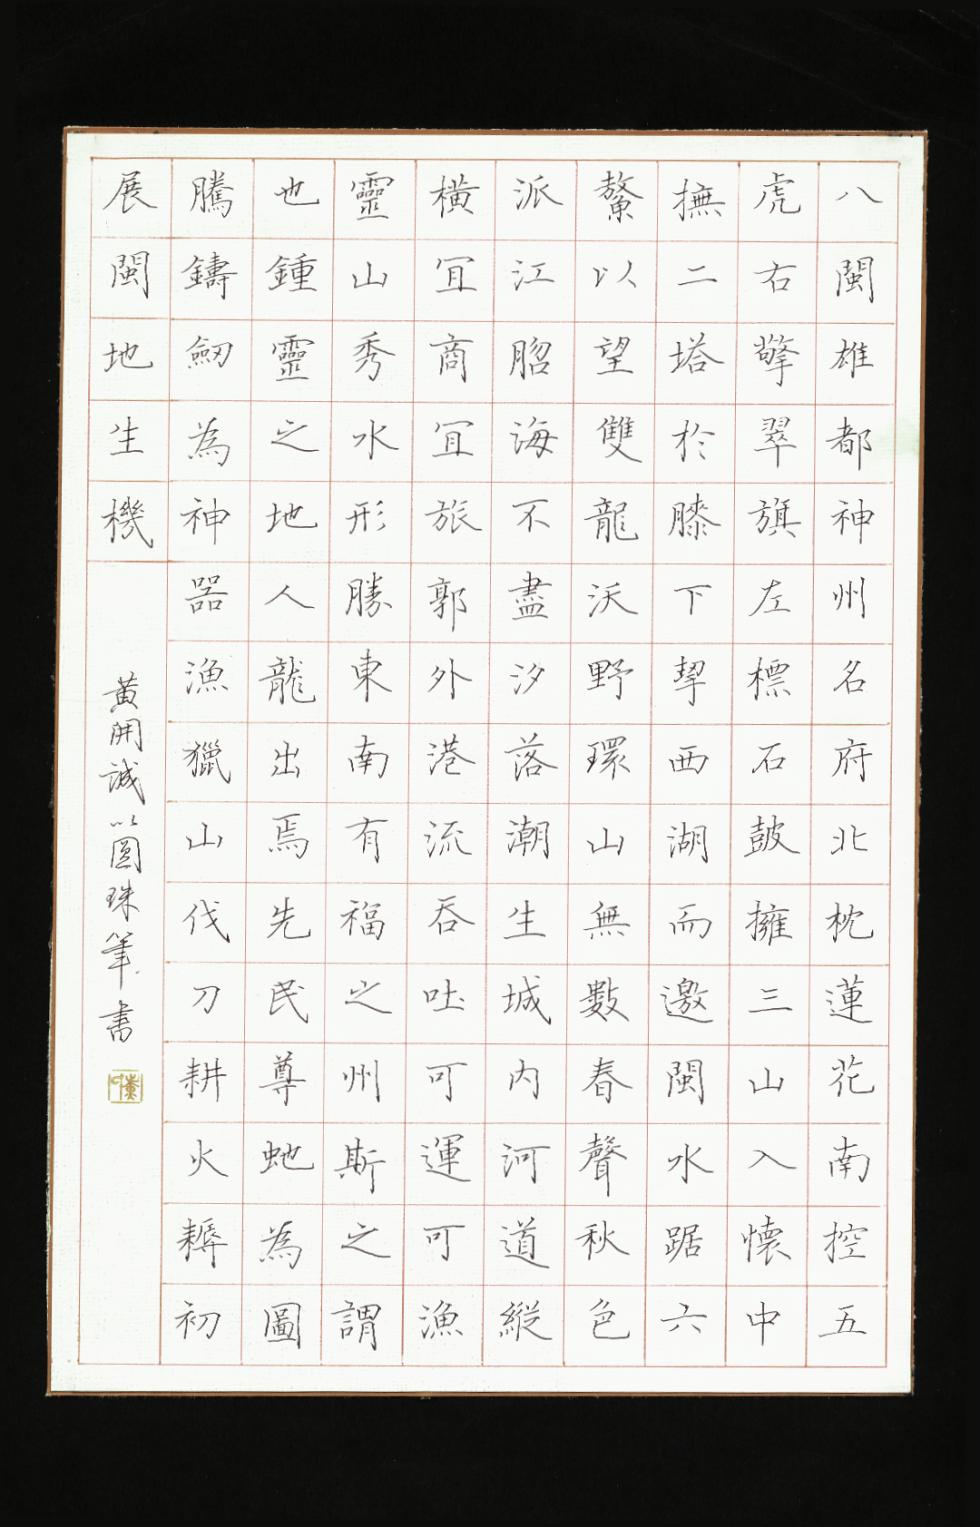 八閩雄都神州名府北枕蓮花南控五
虎右擎翠旗左標石鼓擁三山入懷中
撫二塔於膝下挈西湖而邀閩水踞六
鰲以望雙龍沃野環山無數春聲秋色
派江詔海不盡汐落潮生城内河道縱
橫宜商宜旅郭外港流吞吐可運可漁
靈山秀水形勝東南有福之州斯之謂
也鍾靈之地人龍出焉先民尊虵為圖
騰鑄劒為神器漁獵山伐刀耕火耨初
展閩地生機
黄開誠以圆珠筆書